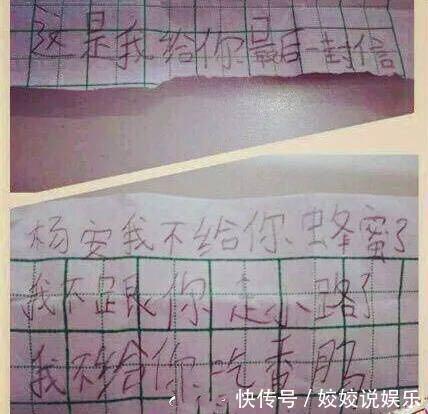 这是我给你最后一封信
杨安我不给你蜂蜜了
我不跟你走小路了
我不给你吃香肠
快传号／姣姣说娱乐